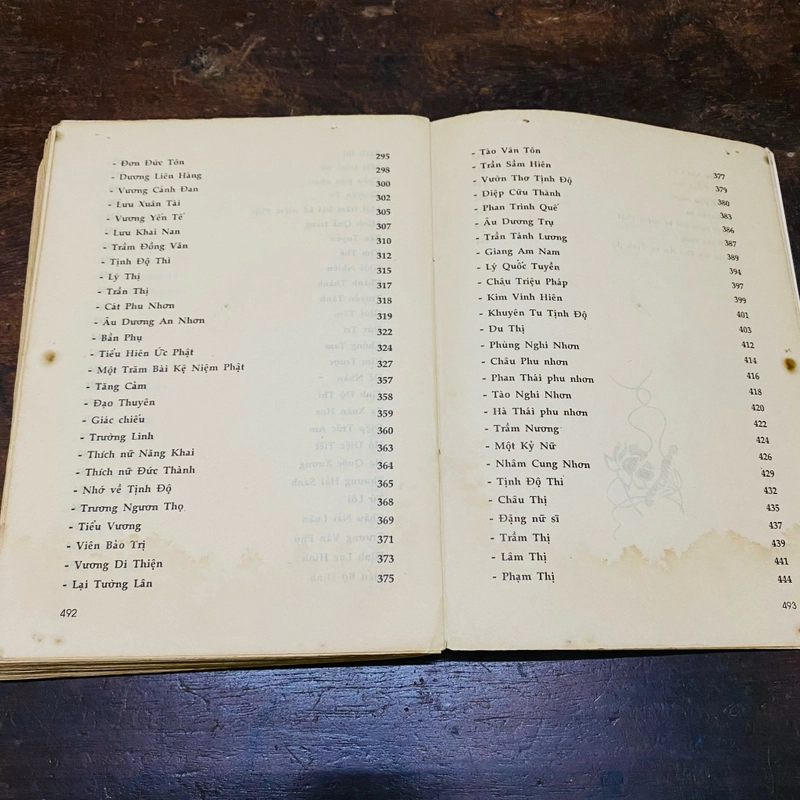 - Đơn Đức Tôn 295
- Dương Liên Hàng 298
- Vương Cảnh Đan 300
- Lưu Xuân Tài 302
- Vương Yến Tế 305
- Lưu Khai Nan 307
- Trầm Đồng Văn 310
- Tịnh Độ Thi 312
- Lý Thị 315
- Trần Thị 317
- Cát Phu Nhơn 318
- Âu Dương An Nhơn 319
- Bần Phụ 322
- Tiểu Hiên Ức Phật 324
- Một Trăm Bài Kệ Niệm Phật 327
- Tăng Cảm 357
- Đạo Thuyên 358
- Giác chiếu 359
- Trưởng Linh 360
- Thích nữ Năng Khai 363
- Thích nữ Đức Thành 364
- Nhớ về Tịnh Độ 365
- Trương Ngươn Thọ 368
- Tiểu Vương 369
- Viên Bảo Trị 371
- Vương Di Thiện 373
- Lại Tưởng Lân 375
492
- Tào Văn Tôn 377
- Trần Sầm Hiên 379
- Vườn Thơ Tịnh Độ 380
- Diệp Cữu Thành 383
- Phan Trình Quế 386
- Âu Dương Trụ 387
- Trần Tánh Lương 389
- Giang Am Nam 394
- Lý Quốc Tuyển 397
- Châu Triệu Pháp 399
- Kim Vinh Hiên 401
- Khuyên Tu Tịnh Độ 403
- Du Thị 412
- Phùng Nghi Nhơn 414
- Châu Phu nhơn 416
- Phan Thái phu nhơn 418
- Tào Nghi Nhơn 420
- Hà Thái phu nhơn 422
- Trầm Nương 424
- Một Kỷ Nữ 426
- Nhâm Cung Nhơn 429
- Tịnh Độ Thi 432
- Châu Thị 435
- Đặng nữ sĩ 437
- Trầm Thị 439
- Lâm Thị 441
- Phạm Thị 444
493